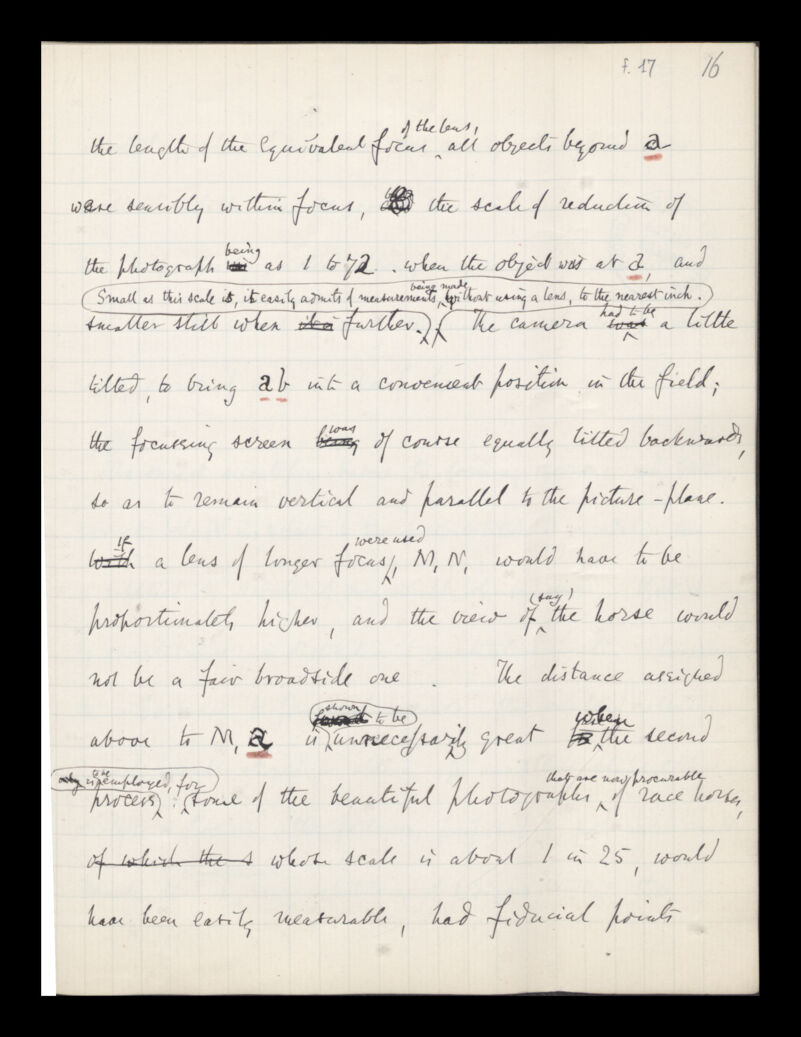 f. 17 16
of the lens,
the length of the Equivalent focus all objects beyond a
were sensibly within focus, the scale of reduction of
being
the photograph as 1 to 72. when the object was at a, and
Small as this scale is, it easily admits of measurements, being made without using a lens, to the nearest inch.
smaller still when it is further. The camera had to be was a little
tilted, to bring ab into a convenient position in the field;
was
the focussing screen being of course equally tilted backwards,
so as to remain vertical and parallel to the picture-plane.
if were used
With a lens of longer focus, M, N, would have to be
(say)
proportionately higher, and the view of the horse would
not be a fair broadside one. The distance assigned
shown to be when
above to M, a is unnecessarily great the second
only is employed, for that are now procurable
process. Some of the beautiful photographs of race horses,
of which the s whose scale is about 1 in 25, would
have been easily measurable, had fiducial points